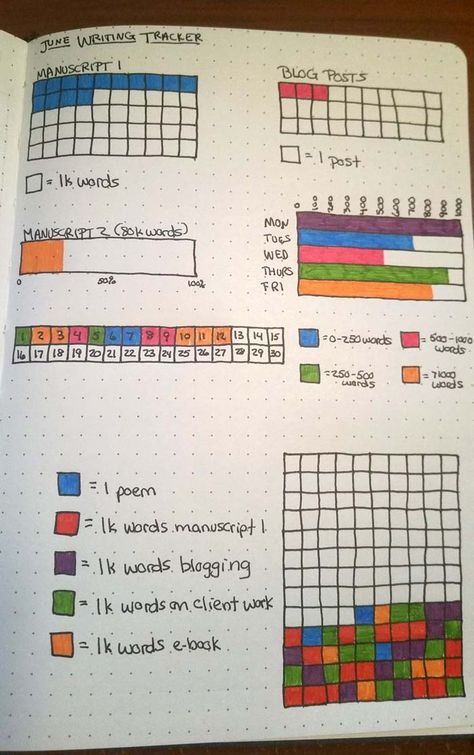 JUNE WRITING TRACKER
MANUSCRIPT 1
= 1k words
BLOG POSTS
= 1 post
MANUSCRIPT 2 (80k words)
0 50% 100%
0 100 200 300 400 500 600 700 800 900 1000
MON
TUES
WED
THURS
FRI
1 2 3 4 5 6 7 8 9 10 11 12 13 14 15
16 17 18 19 20 21 22 23 24 25 26 27 28 29 30
= 0-250 words
= 500-1000 words
= 250-500 words
= >1000 words
= 1 poem
= 1k words manuscript 1
= 1k words blogging
= 1k words on client work
= 1k words e-book